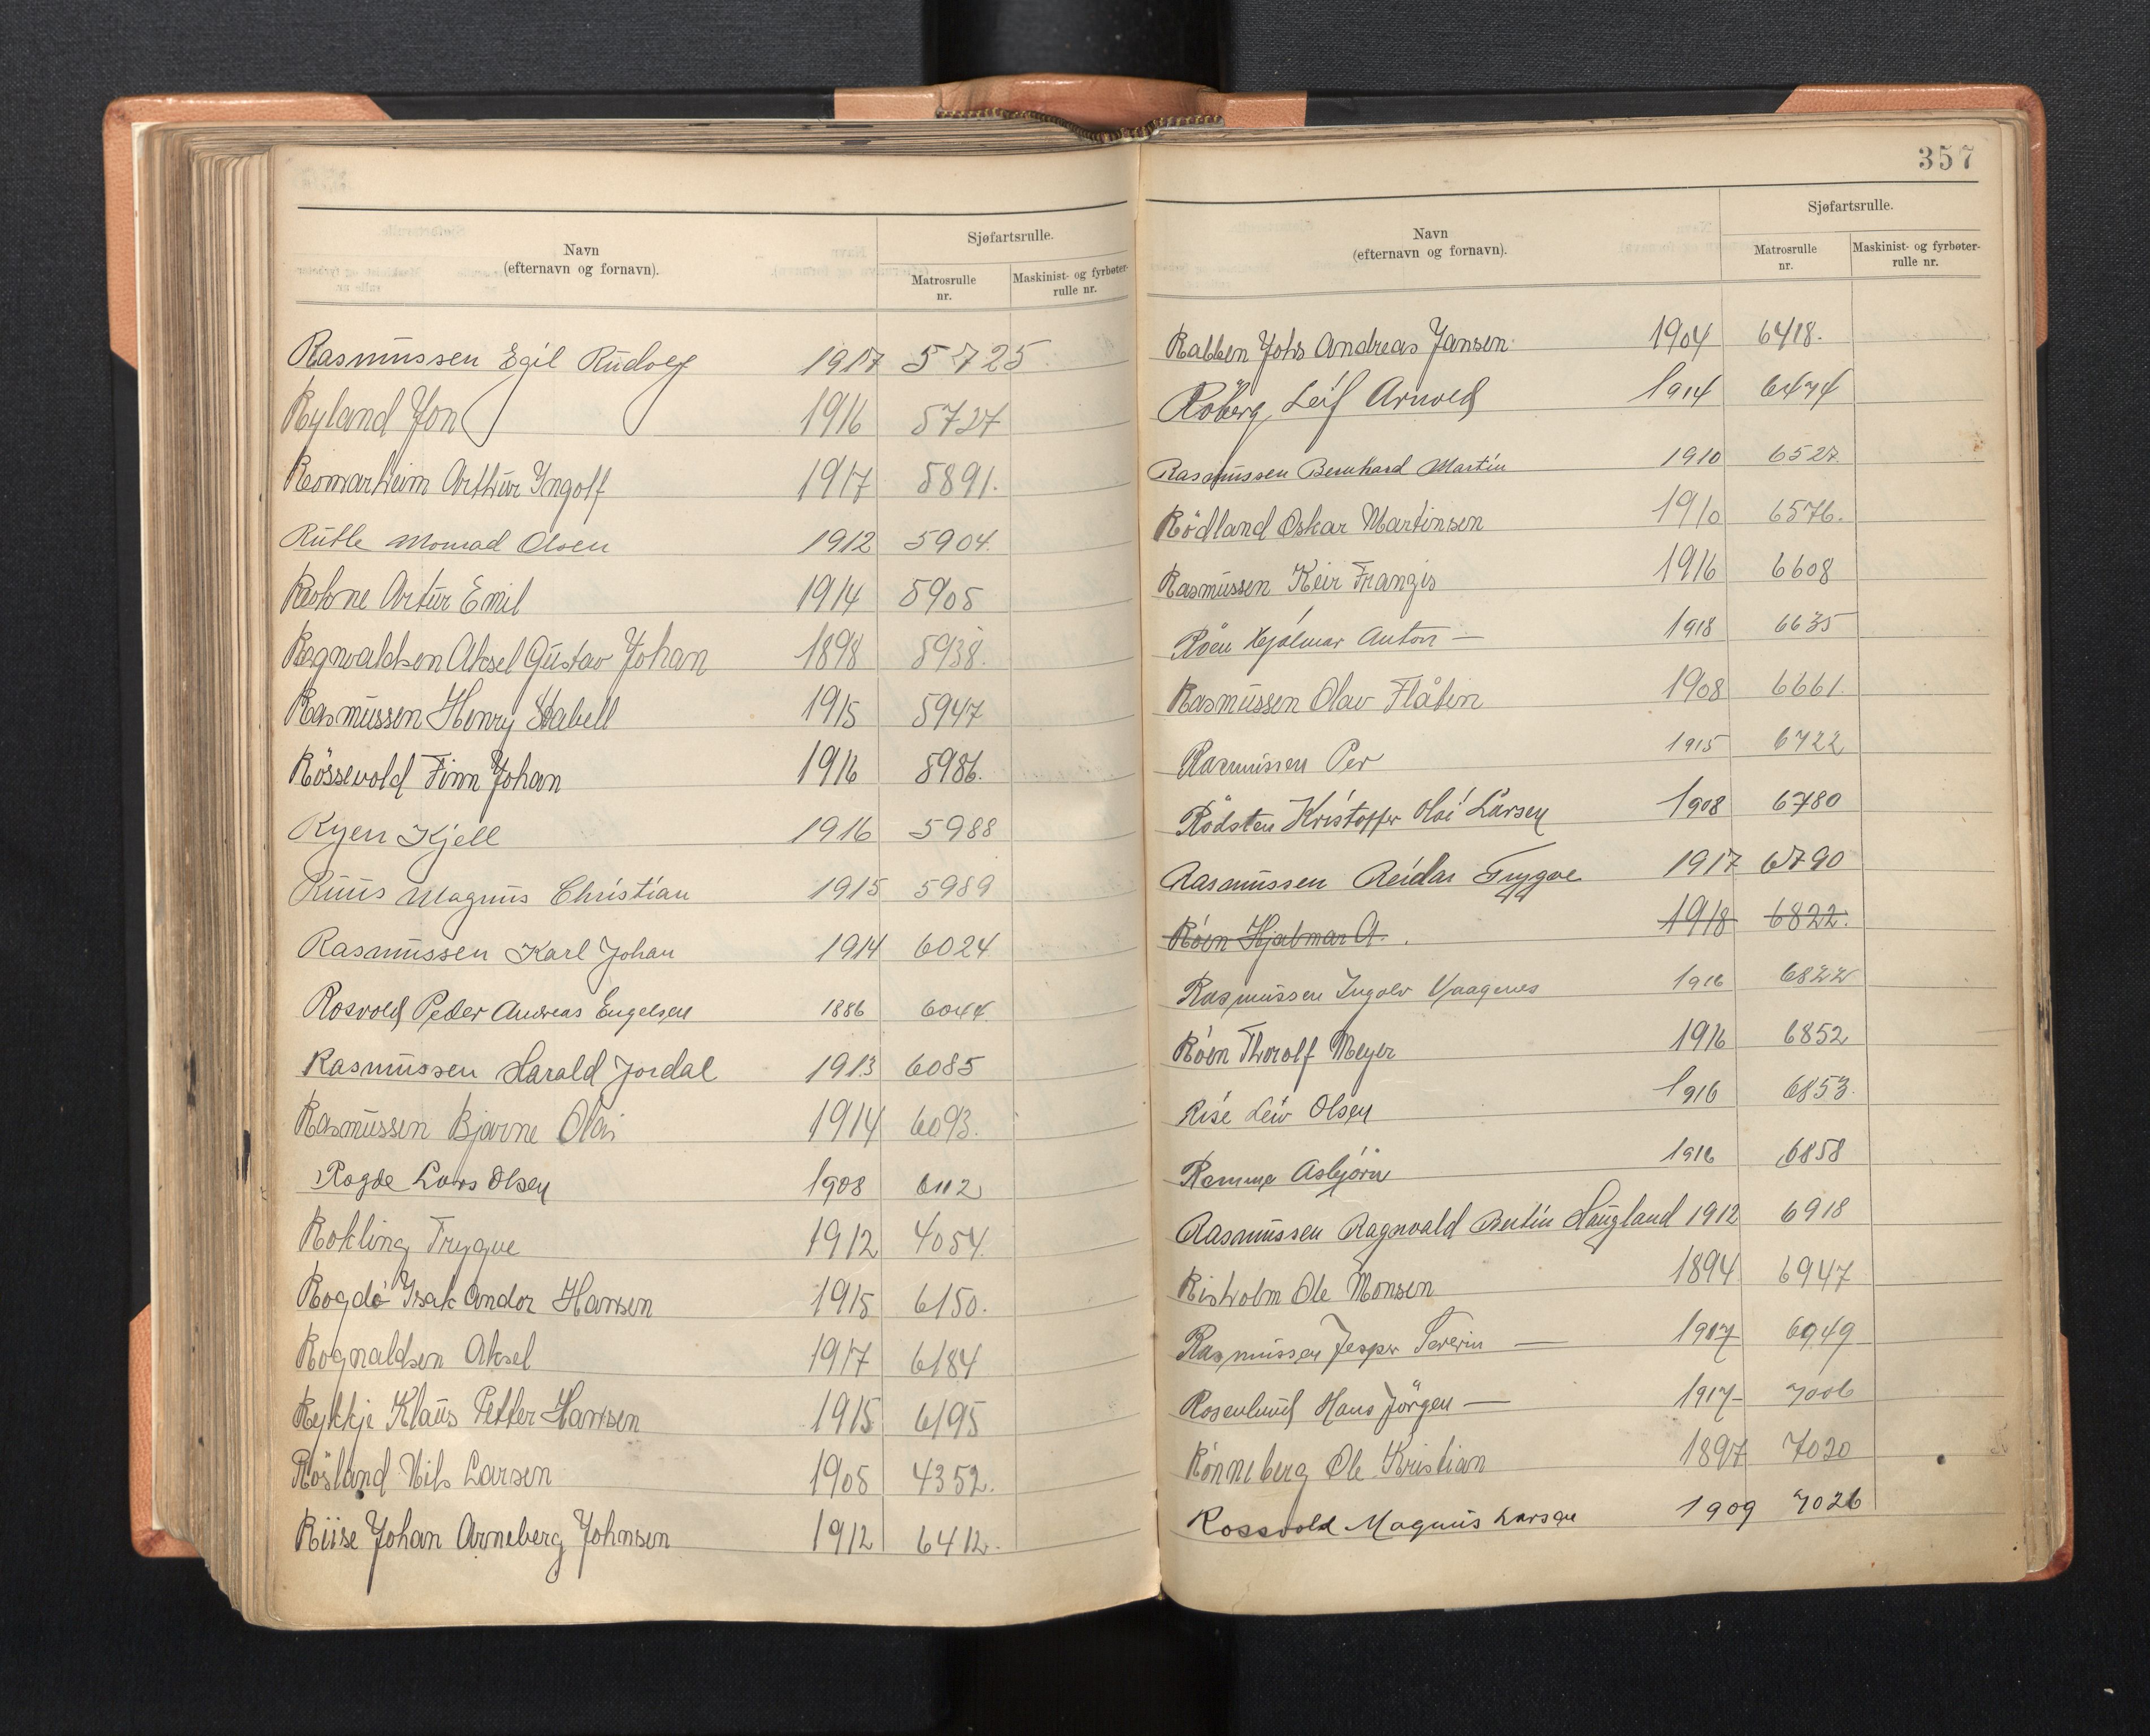 Navn
(efternavn og fornavn).
Sjøfartsrulle.
Matrosrulle
nr.
Maskinist- og fyrbøter-
rulle nr.
Rasmussen Egil Rudolf 1917 5725
Ryland Jon 1916 5727
Romarheim Arthur Ingolf 1917 5891.
Rutle Monrad Olsen 1912 5904.
Artur Emil 1914 5905
Ragnvaldsen Aksel Gustav Johan 1898 5938.
Rasmussen Henry Stabell 1915 5947
Rössevold Finn Johan 1916 5986.
Ryen Kjell 1916 5988
Ruus Magnus Christian 1915 5989
Rasmussen Karl Johan 1914 6024
Rosvold Peder Andreas Engelsen 1886 6044
Rasmussen Harald Jordal 1913 6085
Rasmussen Bjarne Olai 1914 6093.
Rogde Lars Olsen 1908 6112
Rokling Trygve 1912 4054.
Isak Andor Hansen 1915 6150.
Rognaldsen Aksel 1917 6184
Rykkje Klaus Petter Hansen 1915 6195
Rösland Nils Larsen 1905 4352.
Riise Johan Arneberg Johnsen 1912 6412.
357
Navn
(efternavn og fornavn).
Sjøfartsrulle.
Matrosrulle
nr.
Maskinist- og fyrbøter-
rulle nr.
Rabben Johs Andreas Jansen 1904 6418.
Röberg Leif Arnold 1914 6474
Rasmussen Bernhard Martin 1910 6527.
Rödland Oskar Martinsen 1910 6576.
Rasmussen Keir Frangis 1916 6608
Röen Hjalmar Anton — 1918 6635
Rasmussen Olav Flåten 1908 6661.
Rasmussen Per 1915 6722
Rödsten Kristoffer Olai Larsen 1908 6780
Rasmussen Reidar Trygve 1917 6790
Röen Hjalmar A. 1918 6822.
Rasmussen Ingolv Vaagenes 1916 6822
Röen Thorolf Meyer 1916 6852
Rise Leiv Olsen 1916 6853.
Remme Asbjörn 1916 6858
Rasmussen Ragnvald Bertin Haugland 1912 6918
Risholm Ole Monsen 1894 6947
Rasmussen Jesper Severin — 1907 6949
Rosenlund Hans Jörgen — 1917- 7006
Rönneberg Ole Kristian 1897 7020
Rossvold Magnus Larsen 1909 7026